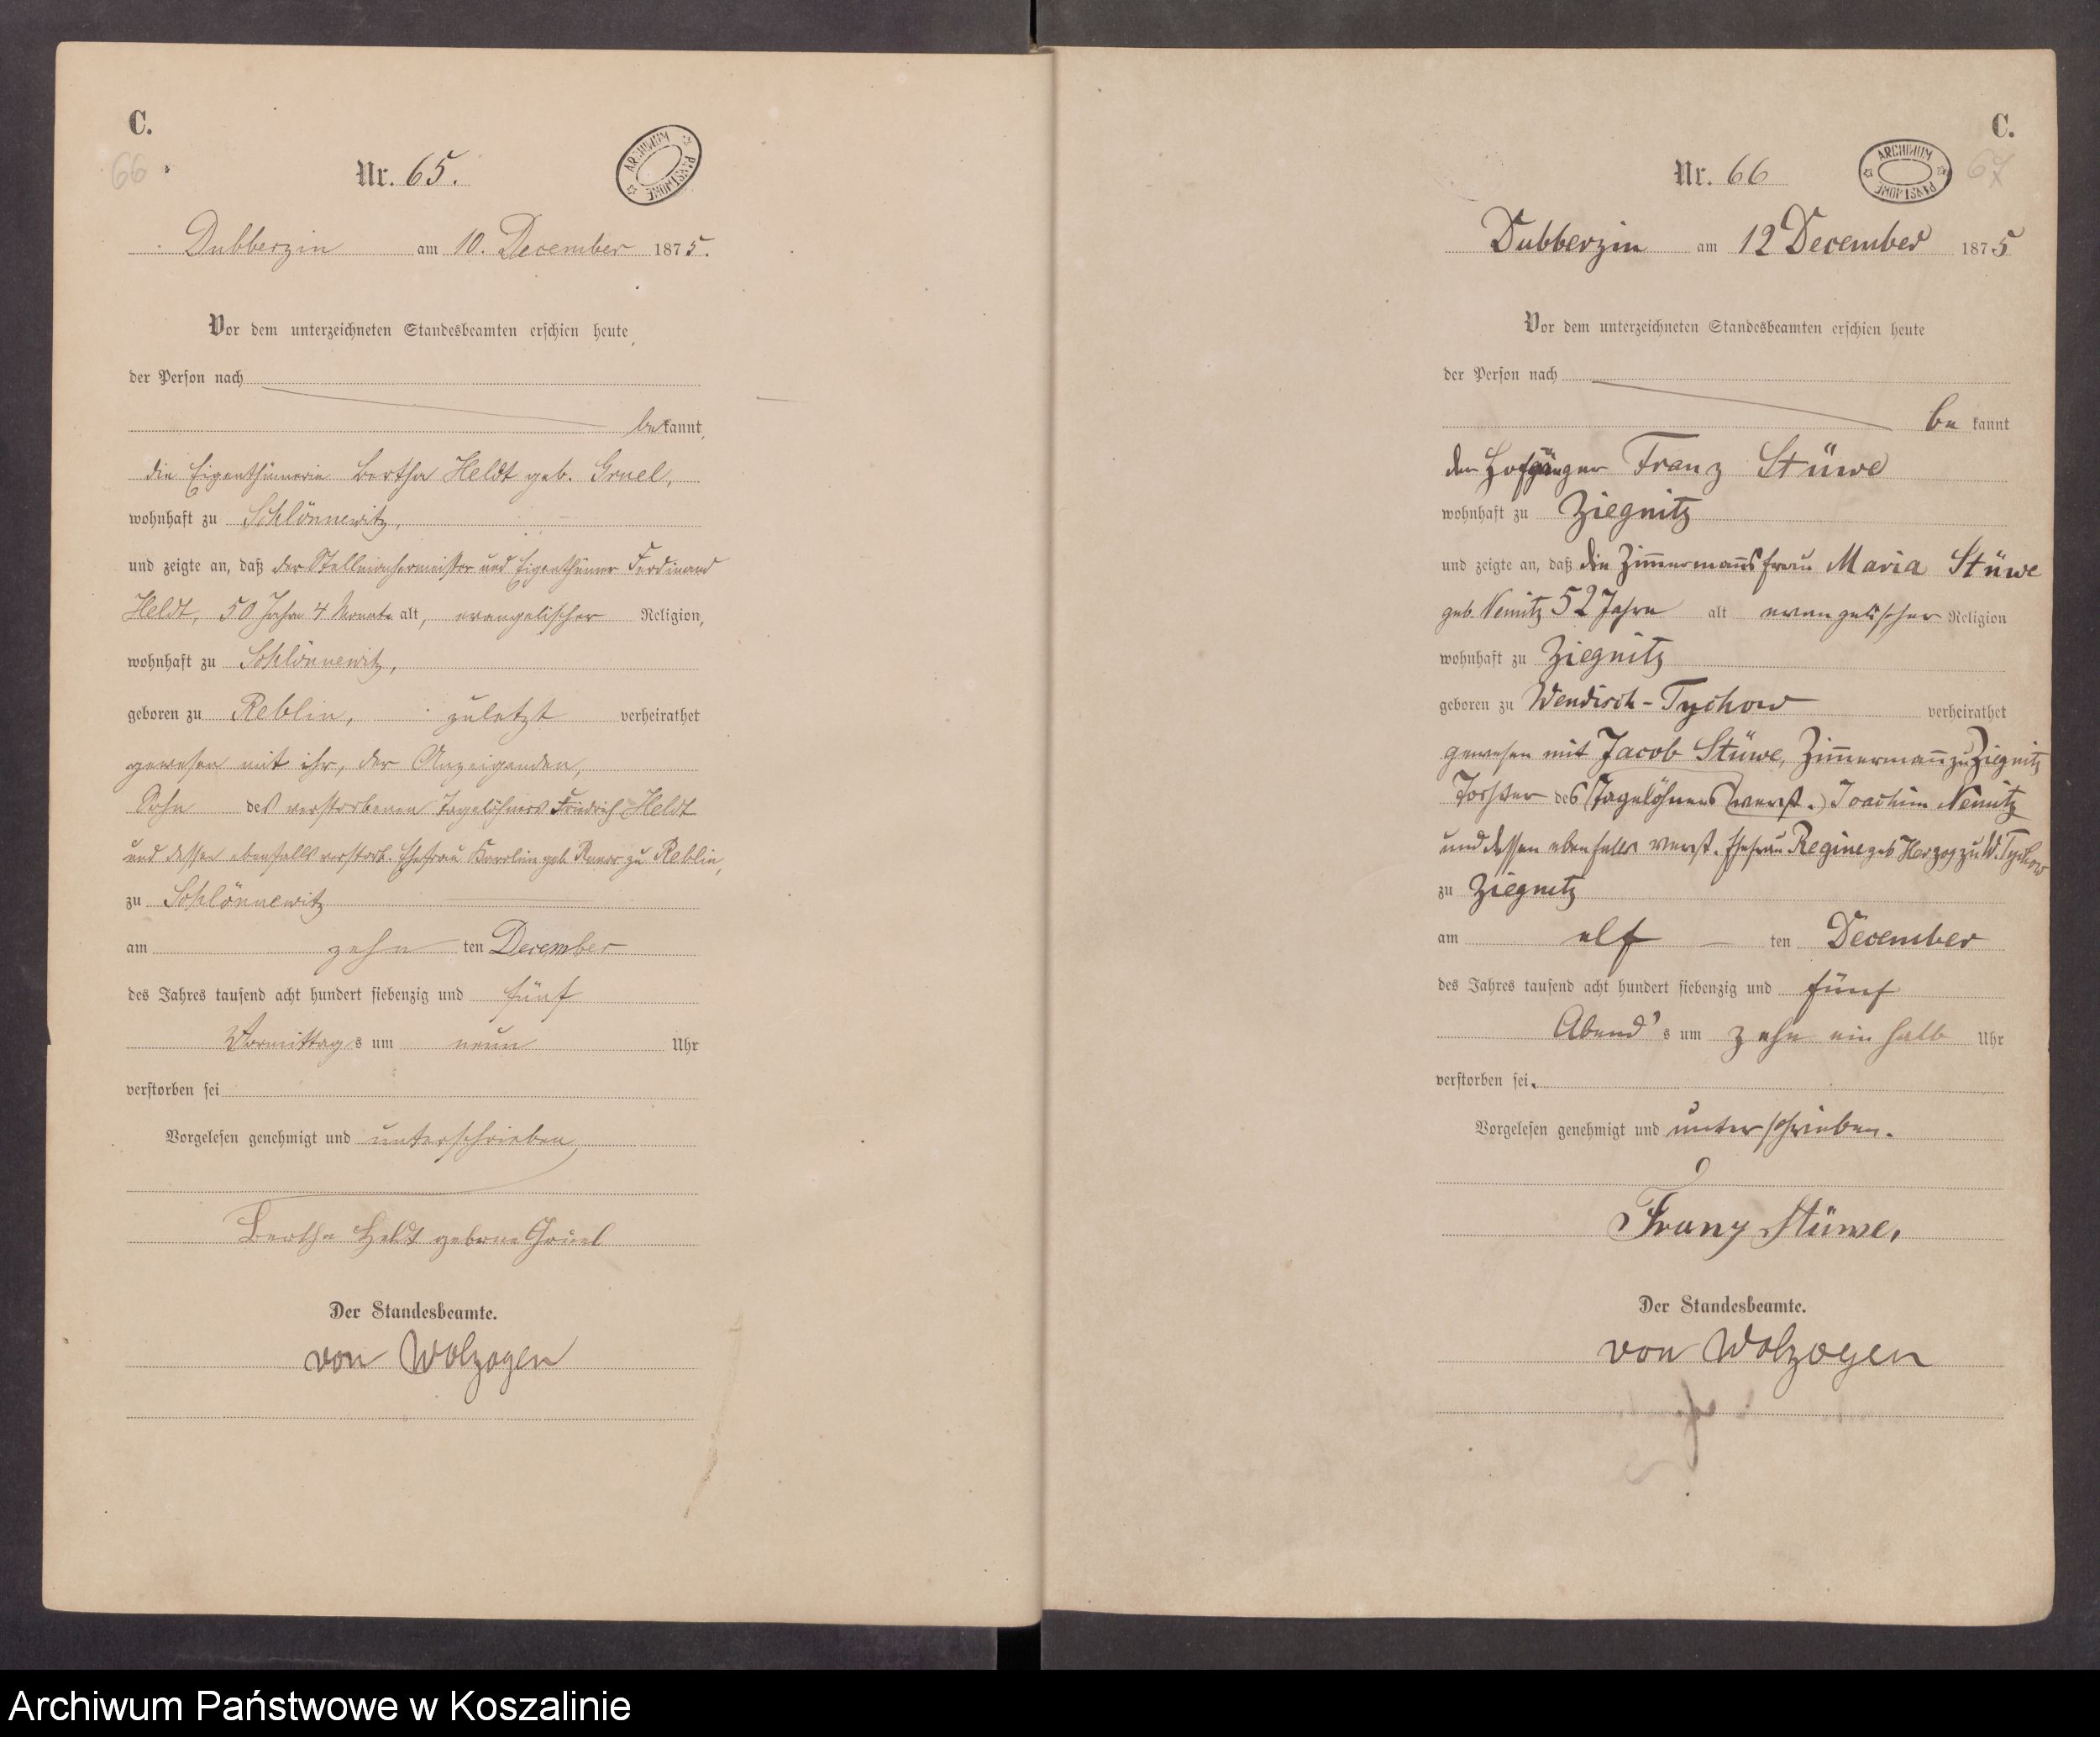 C.
66
Nr. 65.
ARCHIWUM PAŃSTWOWE
Dubberzin am 10. December 1875.
Vor dem unterzeichneten Standesbeamten erschien heute,
der Person nach
bekannt,
die Eigenthümerin Bertha Heldt geb. Gruel,
wohnhaft zu Schlönnewitz,
und zeigte an, daß der Stellmachermeister und Eigenthümer Ferdinand
Heldt, 50 Jahre 4 Monate alt, evangelischer Religion,
wohnhaft zu Schlönnewitz,
geboren zu Reblin, zuletzt verheirathet
gewesen mit ihr, der Anzeigenden,
Sohn des verstorbenen Tagelöhners Friedrich Heldt
und dessen ebenfalls verstorb. Ehefrau Karolin geb. zu Reblin,
zu Schlönnewitz
am zehn ten December
des Jahres tausend acht hundert siebenzig und fünf
Vormittags um neun Uhr
verstorben sei
Vorgelesen genehmigt und unterschrieben
Bertha Heldt geborne Gruel
Der Standesbeamte.
von Wolzogen
C.
67
Nr. 66
ARCHIWUM PAŃSTWOWE
Dubberzin am 12 December 1875
Vor dem unterzeichneten Standesbeamten erschien heute
der Person nach
be kannt
der Hofgänger Franz Stüwe
wohnhaft zu Ziegnitz
und zeigte an, daß die Zim̄erman̄sfrau Maria Stüwe
geb. Nemitz 52 Jahre alt evangelischer Religion
wohnhaft zu Ziegnitz
geboren zu Wendisch-Tychow verheirathet
gewesen mit Jacob Stüwe, Zim̄erman̄ zu Ziegnitz
Tochter des (Tagelöhners verst.) Joachim Nemitz
und dessen ebenfalls verst. Ehefrau Regine geb Herzog zu W. Tychow
zu Ziegnitz
am elf ten December
des Jahres tausend acht hundert siebenzig und fünf
Abend's um zehn ein halb Uhr
verstorben sei.
Vorgelesen genehmigt und unterschrieben.
Franz Stüwe.
Der Standesbeamte.
von Wolzogen
Archiwum Państwowe w Koszalinie